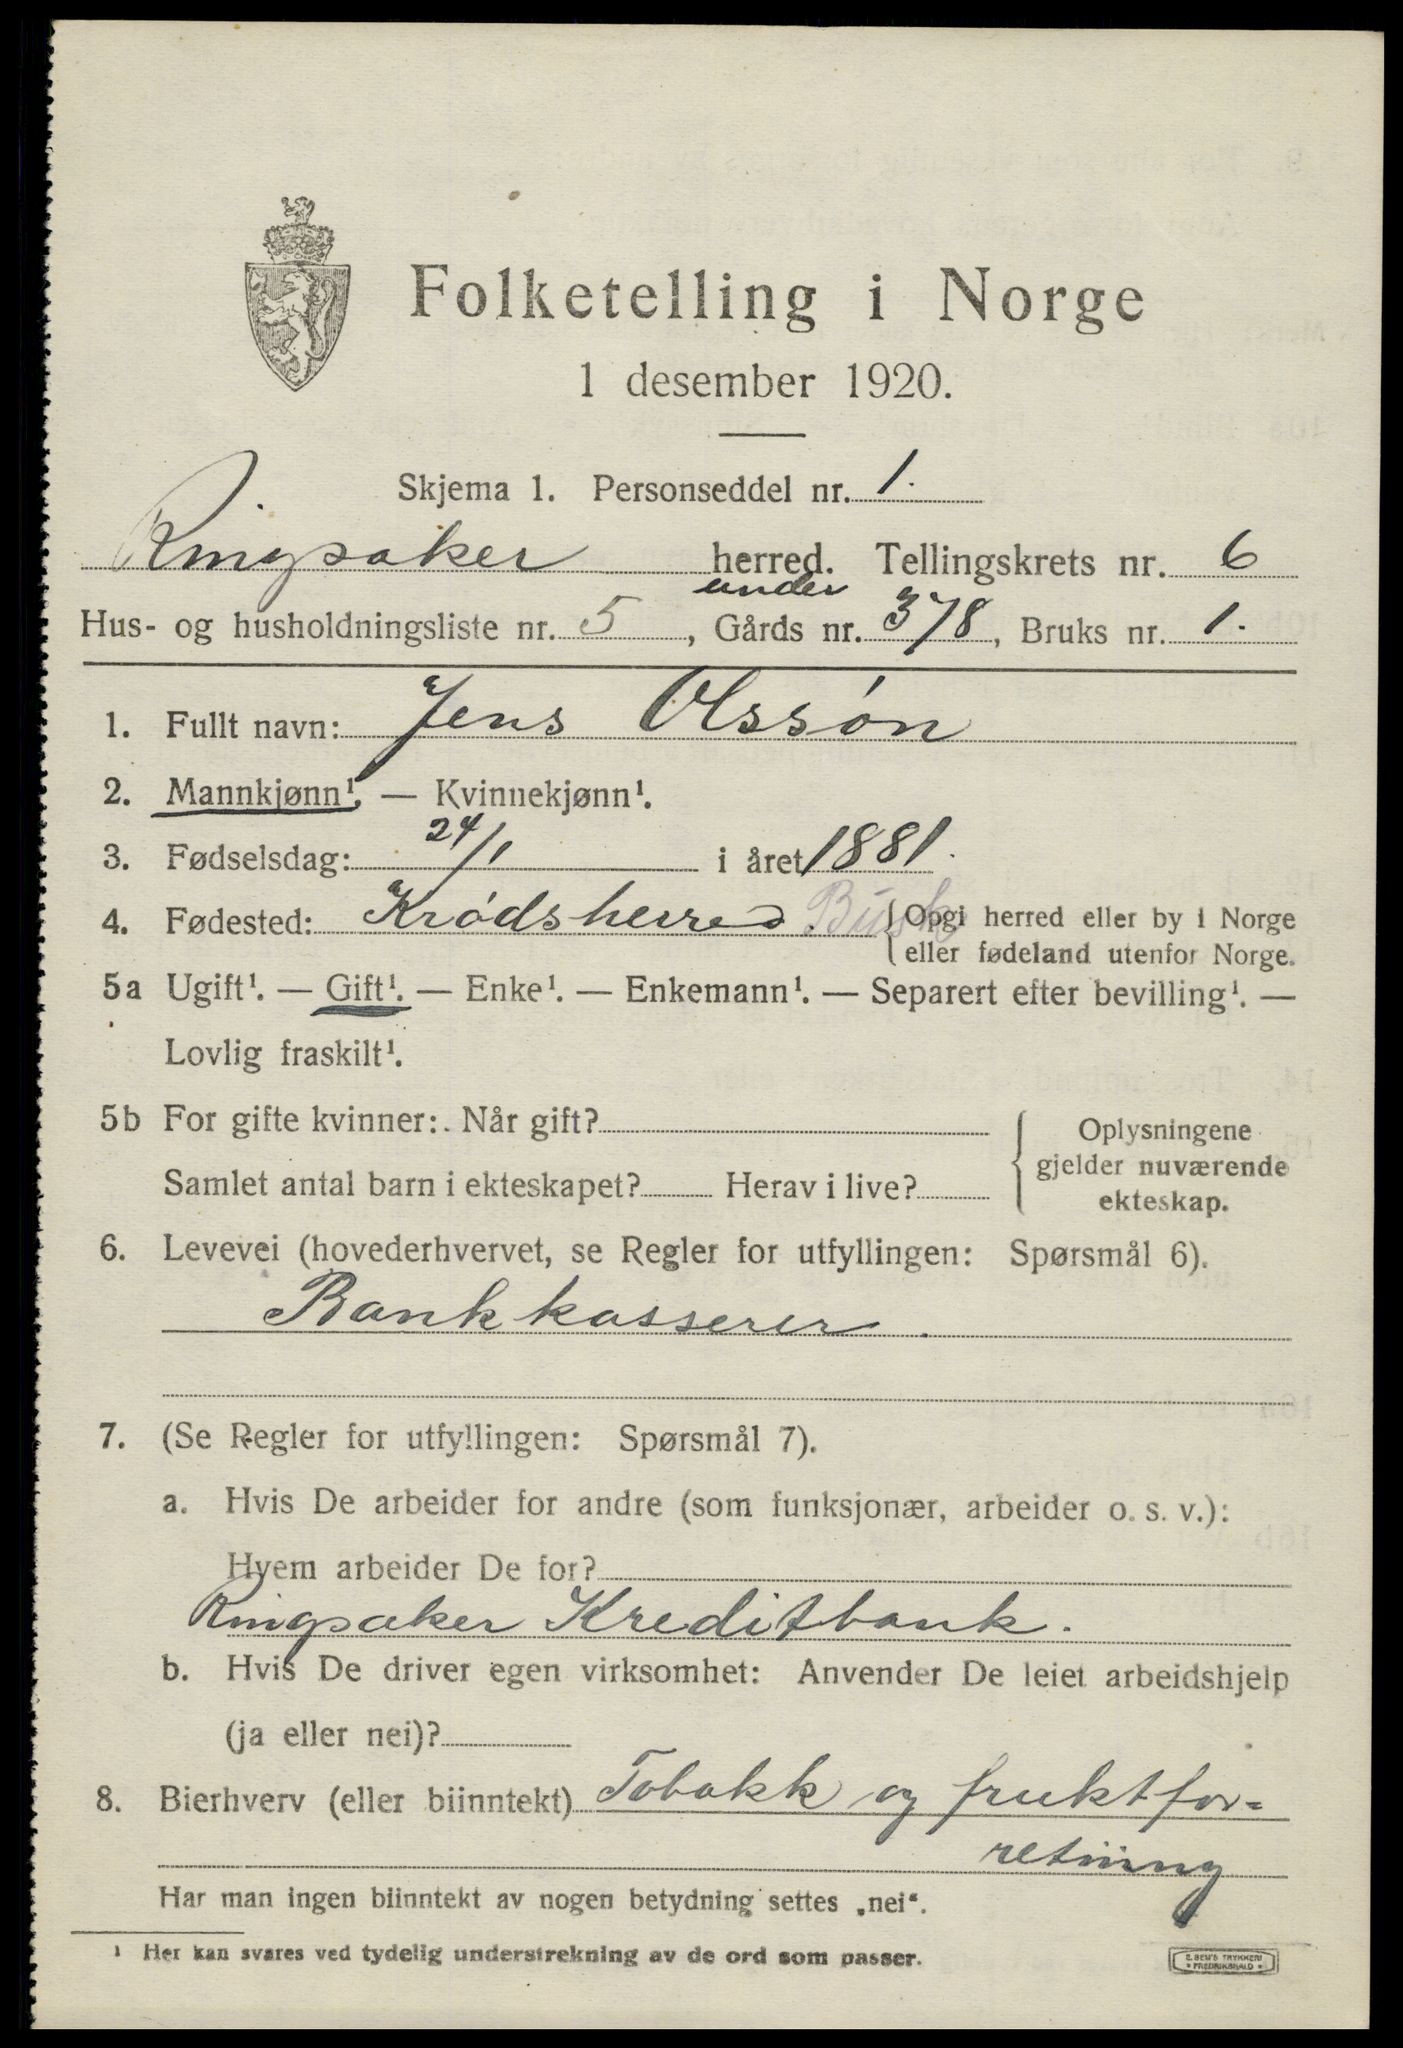 Folketelling i Norge
1 desember 1920.
Skjema 1. Personseddel nr. 1.
Ringsaker herred. Tellingskrets nr. 6
under
Hus- og husholdningsliste nr. 5, Gårds nr. 378, Bruks nr. 1.
1. Fullt navn: Jens Olssøn
2. Mannkjønn¹. — Kvinnekjønn¹.
3. Fødselsdag: 24/1 i året 1881.
4. Fødested: Krødsherred. Busk {Opgi herred eller by i Norge
eller fødeland utenfor Norge.
5a Ugift¹. — Gift¹. — Enke¹. — Enkemann¹. — Separert efter bevilling¹. —
Lovlig fraskilt¹.
5b For gifte kvinner: Når gift?
Samlet antal barn i ekteskapet? Herav i live?
Oplysningene
gjelder nuværende
ekteskap.
6. Levevei (hovederhvervet, se Regler for utfyllingen: Spørsmål 6).
Bankkasserer.
7. (Se Regler for utfyllingen: Spørsmål 7).
a. Hvis De arbeider for andre (som funksjonær, arbeider o. s. v.):
Hvem arbeider De for?
Ringsaker Kreditbank.
b. Hvis De driver egen virksomhet: Anvender De leiet arbeidshjelp
(ja eller nei)?
8. Bierhverv (eller biinntekt) Tobakk og fruktfor=
retning
Har man ingen biinntekt av nogen betydning settes „nei“.
¹ Her kan svares ved tydelig understrekning av de ord som passer.
E. SEM'S TRYKKERI
• FREDRIKSHALD •